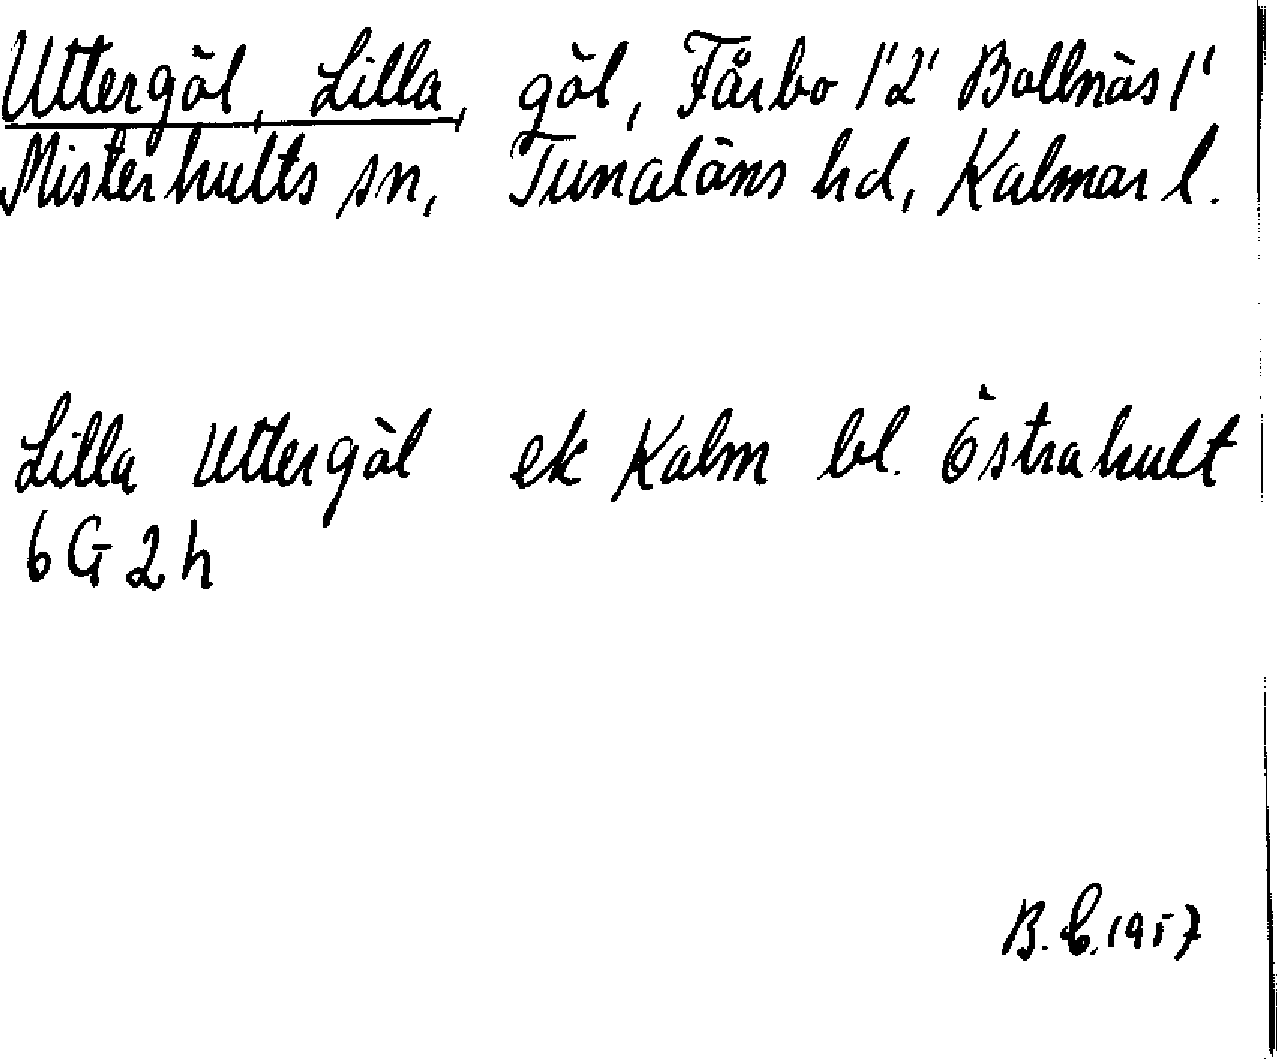 Uttergöl, Lilla, göl, Fårbo 1'2' Bollnäs 1'
Misterhults sn, Tunaläns hd, Kalmar l.
Lilla Uttergöl ek Kalm bl. Östrahult
6G2h
B. C. 1957